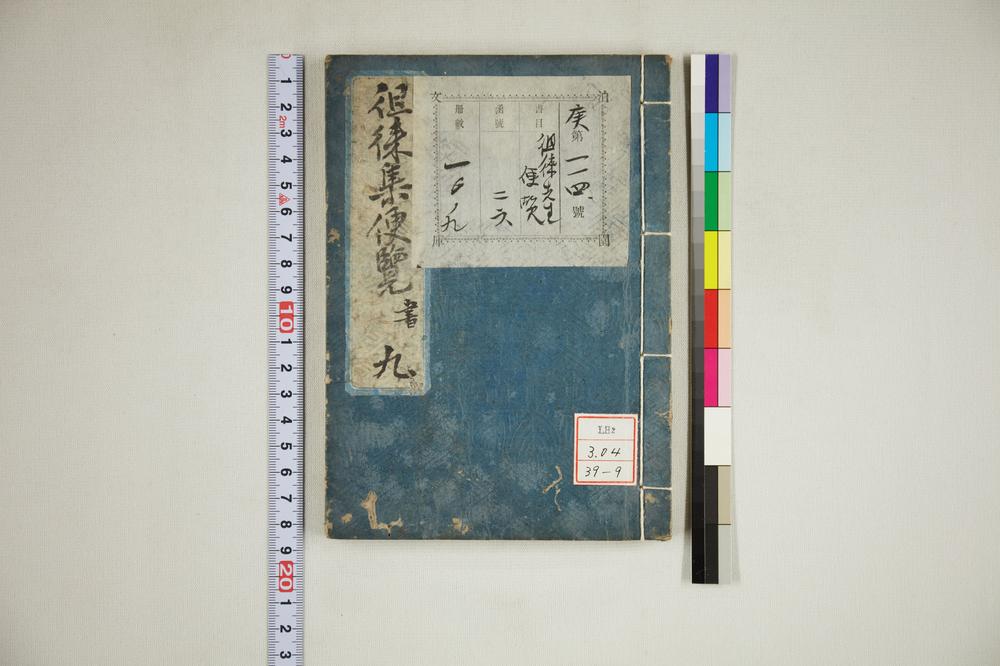 徂徠集便覽 書 九
泊園文庫
庚第一一四號
書目 徂徠先生便覧
函號 二六
冊數 一〇ノ九
LH2
3.04
39-9
1 2 2m 3 4 5 6 7 8 9 10 1 2 3 4 5 6 7 8 9 20 1 2 3